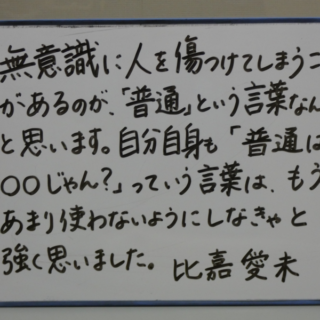 無意識に人を傷つけてしまうこ
があるのが、「普通」という言葉なん
と思います。自分自身も「普通は
○○じゃん?」っていう言葉は、もう
あまり使わないようにしなきゃと
強く思いました。 比嘉愛未